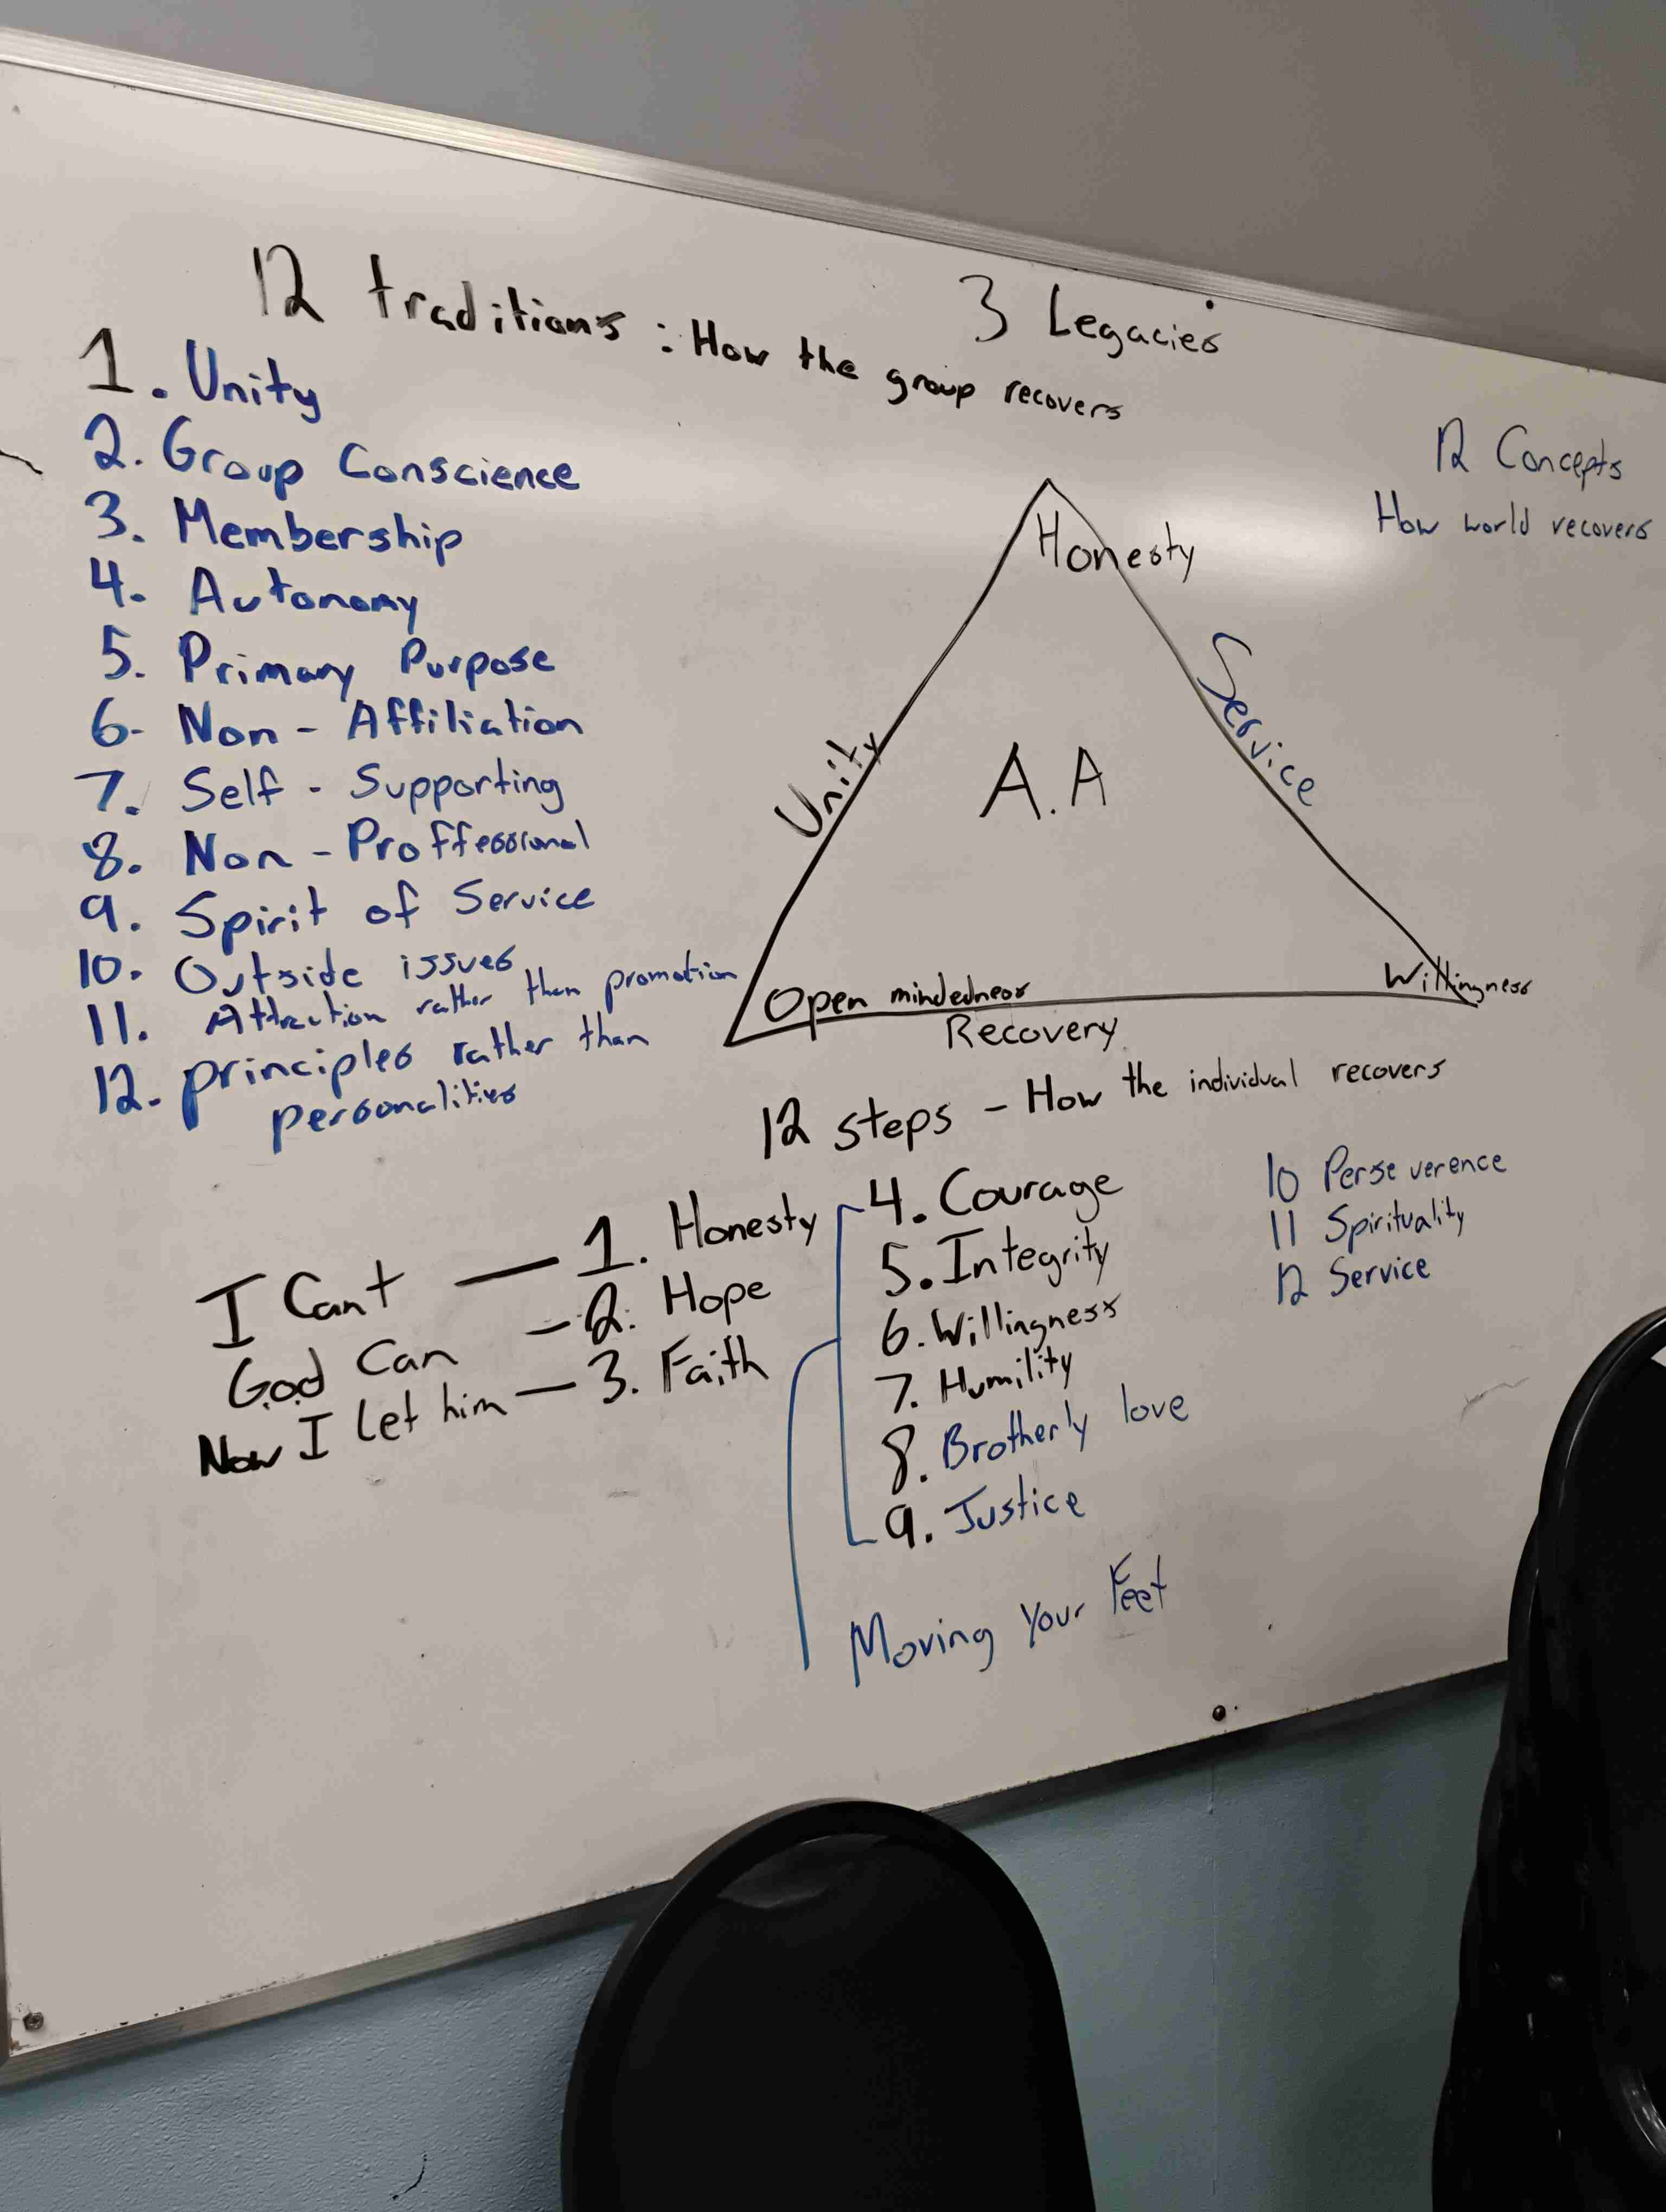 12 traditions : How the group recovers
1. Unity
2. Group Conscience
3. Membership
4. Autonomy
5. Primary Purpose
6- Non - Affiliation
7. Self - Supporting
8. Non - Proffessional
9. Spirit of Service
10. Outside issues
11. Attraction rather than promotion
12. principles rather than
personalities
3 Legacies
12 Concepts
How world recovers
Honesty
Unity
Service
A.A
Open mindedness
Willingness
Recovery
12 steps - How the individual recovers
I Can't — 1. Honesty
God Can — 2. Hope
Now I Let him — 3. Faith
4. Courage
5. Integrity
6. Willingness
7. Humility
8. Brotherly love
9. Justice
10 Perseverence
11 Spirituality
12 Service
Moving Your Feet